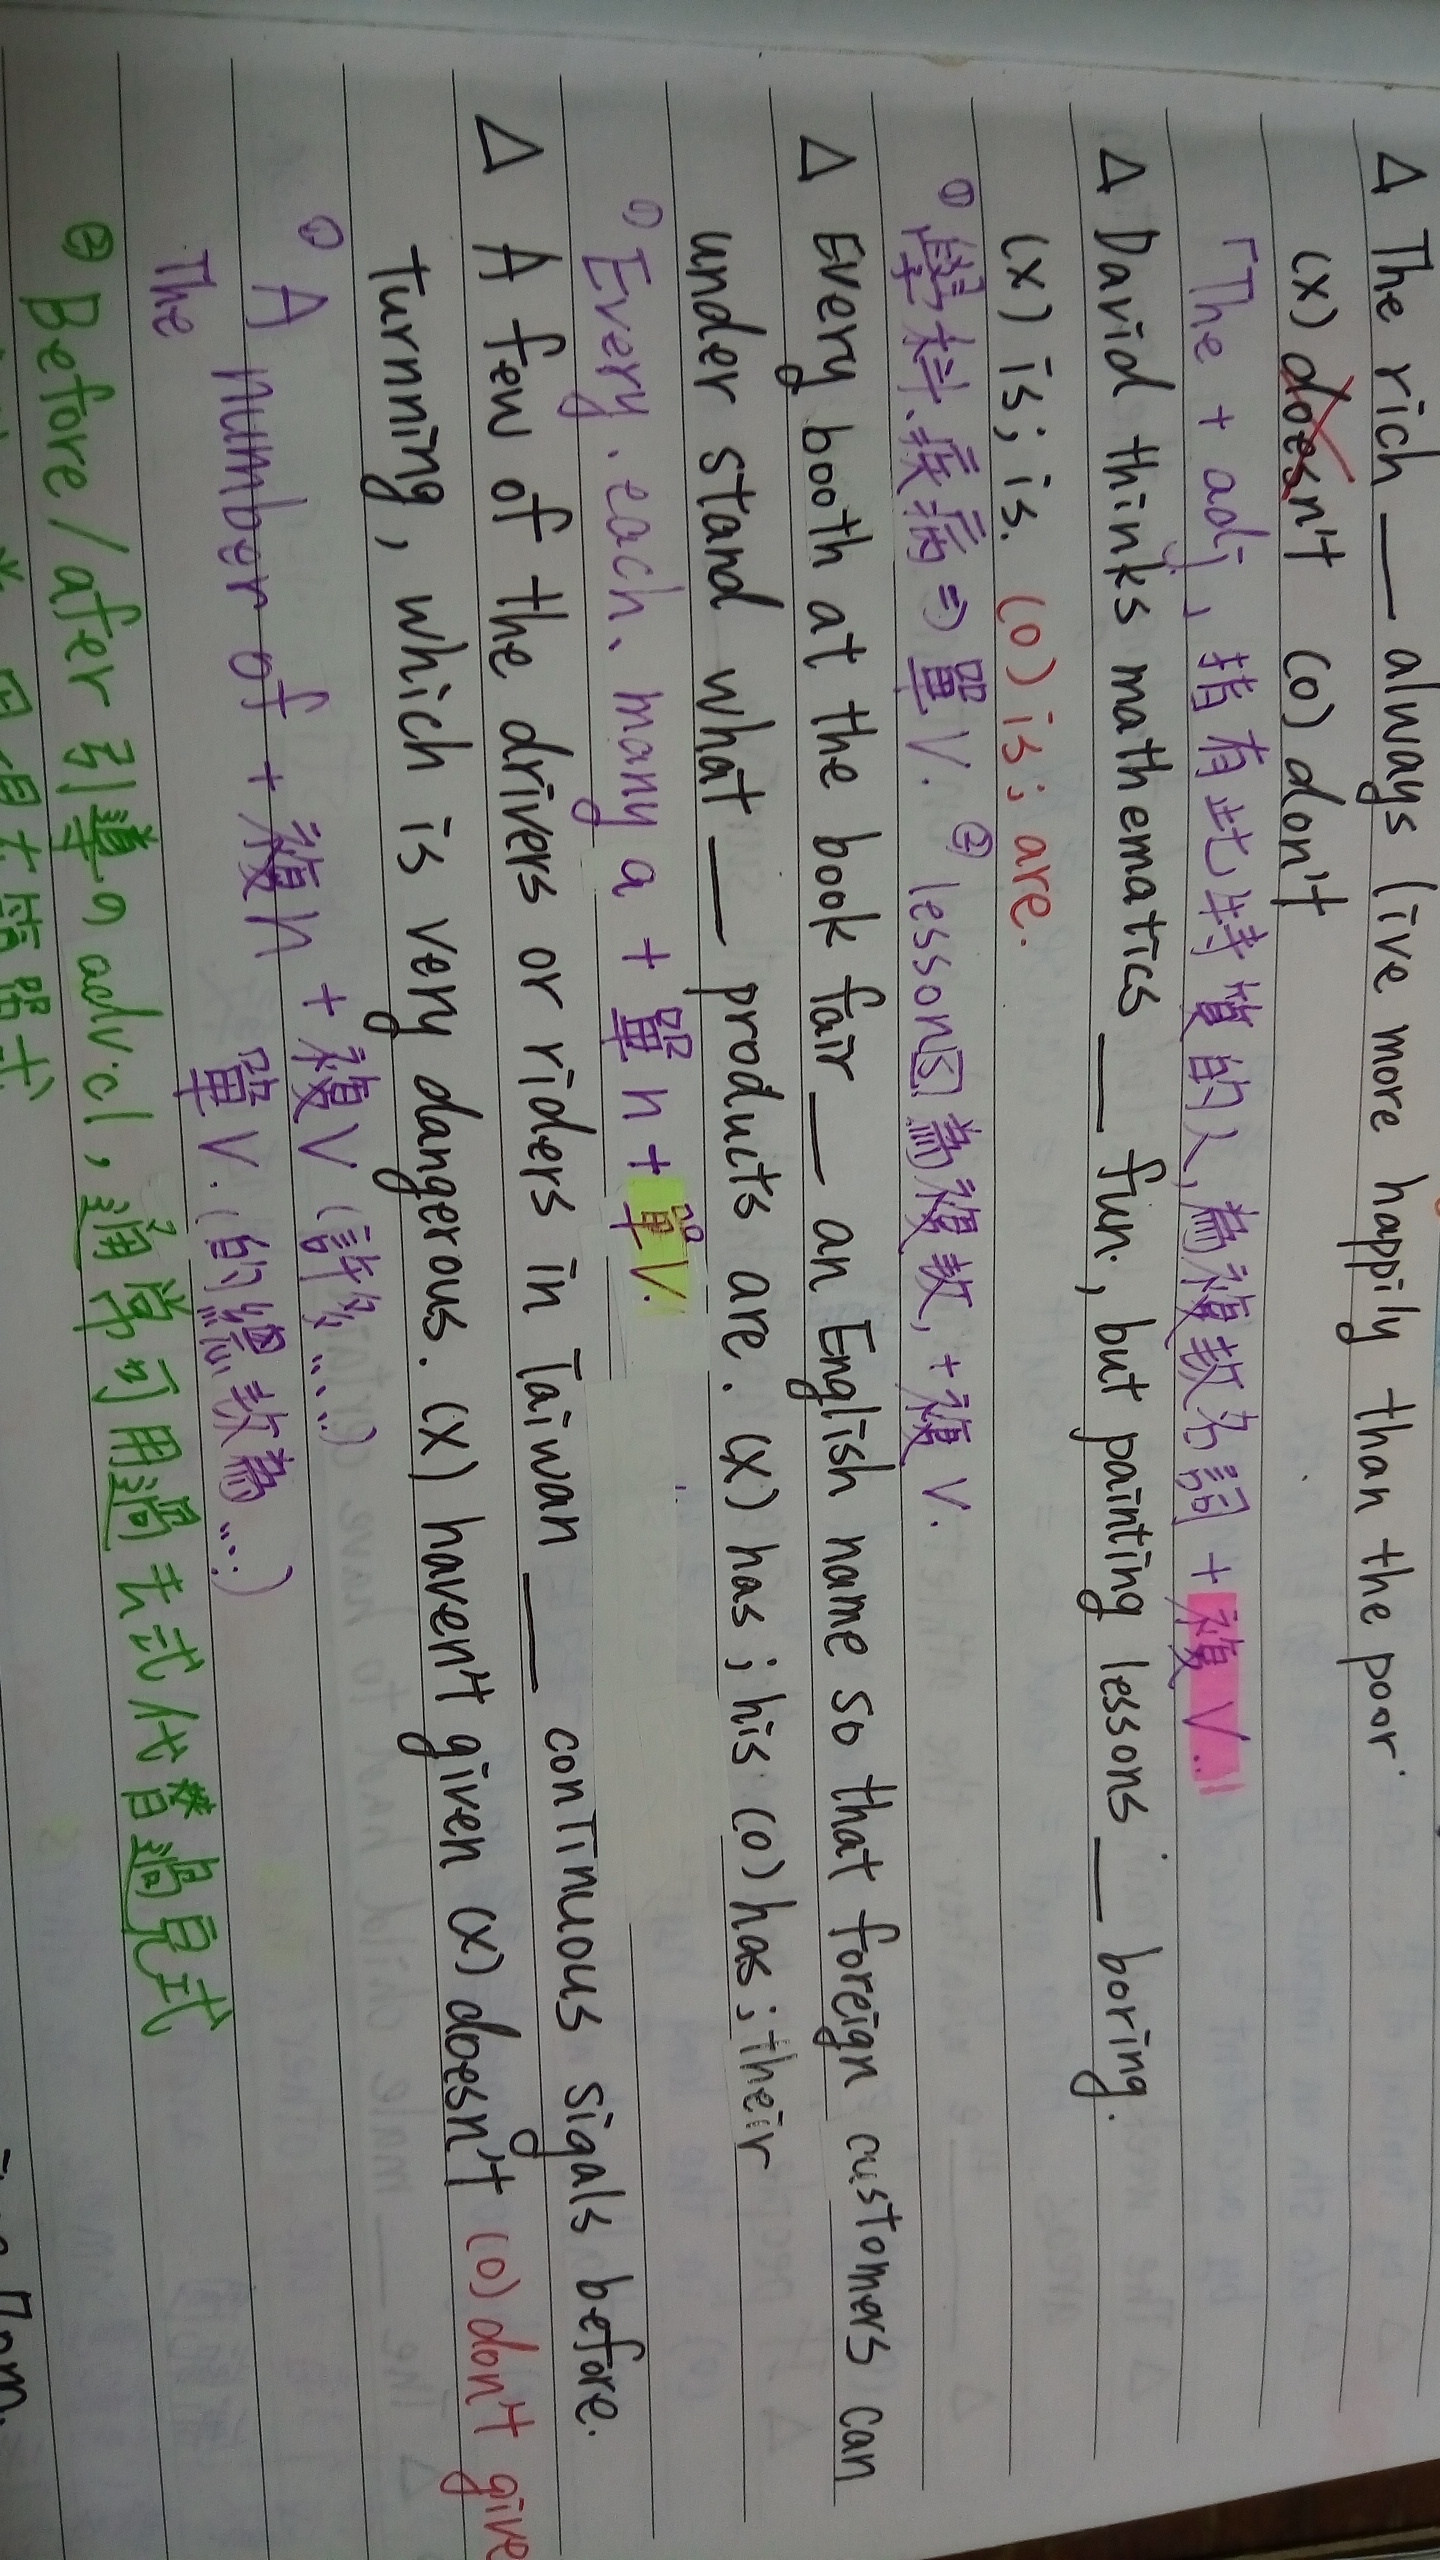 Δ The rich ___ always live more happily than the poor.
(x) doesn't (o) don't
「The + adj」, 指有此特質的人, 為複數名詞 + 複V.」
Δ David thinks mathematics ___ fun, but painting lessons ___ boring.
(x) is; is. (o) is; are.
① 學科、疾病 ⇒ 單V. ② lesson因為複數, + 複V.
Δ Every booth at the book fair ___ an English name so that foreign customers can
under stand what ___ products are. (x) has; his (o) has; their
① Every、each、many a + 單n + 單V.
Δ A few of the drivers or riders in Taiwan ___ continuous sigals before
turnning, which is very dangerous. (x) haven't given (x) doesn't (o) don't give
① A number of + 複n + 複V (許多...)
The 單V. (的總數為...)
② Before / afer 引導の adv.cl, 通常可用過去式代替過完式